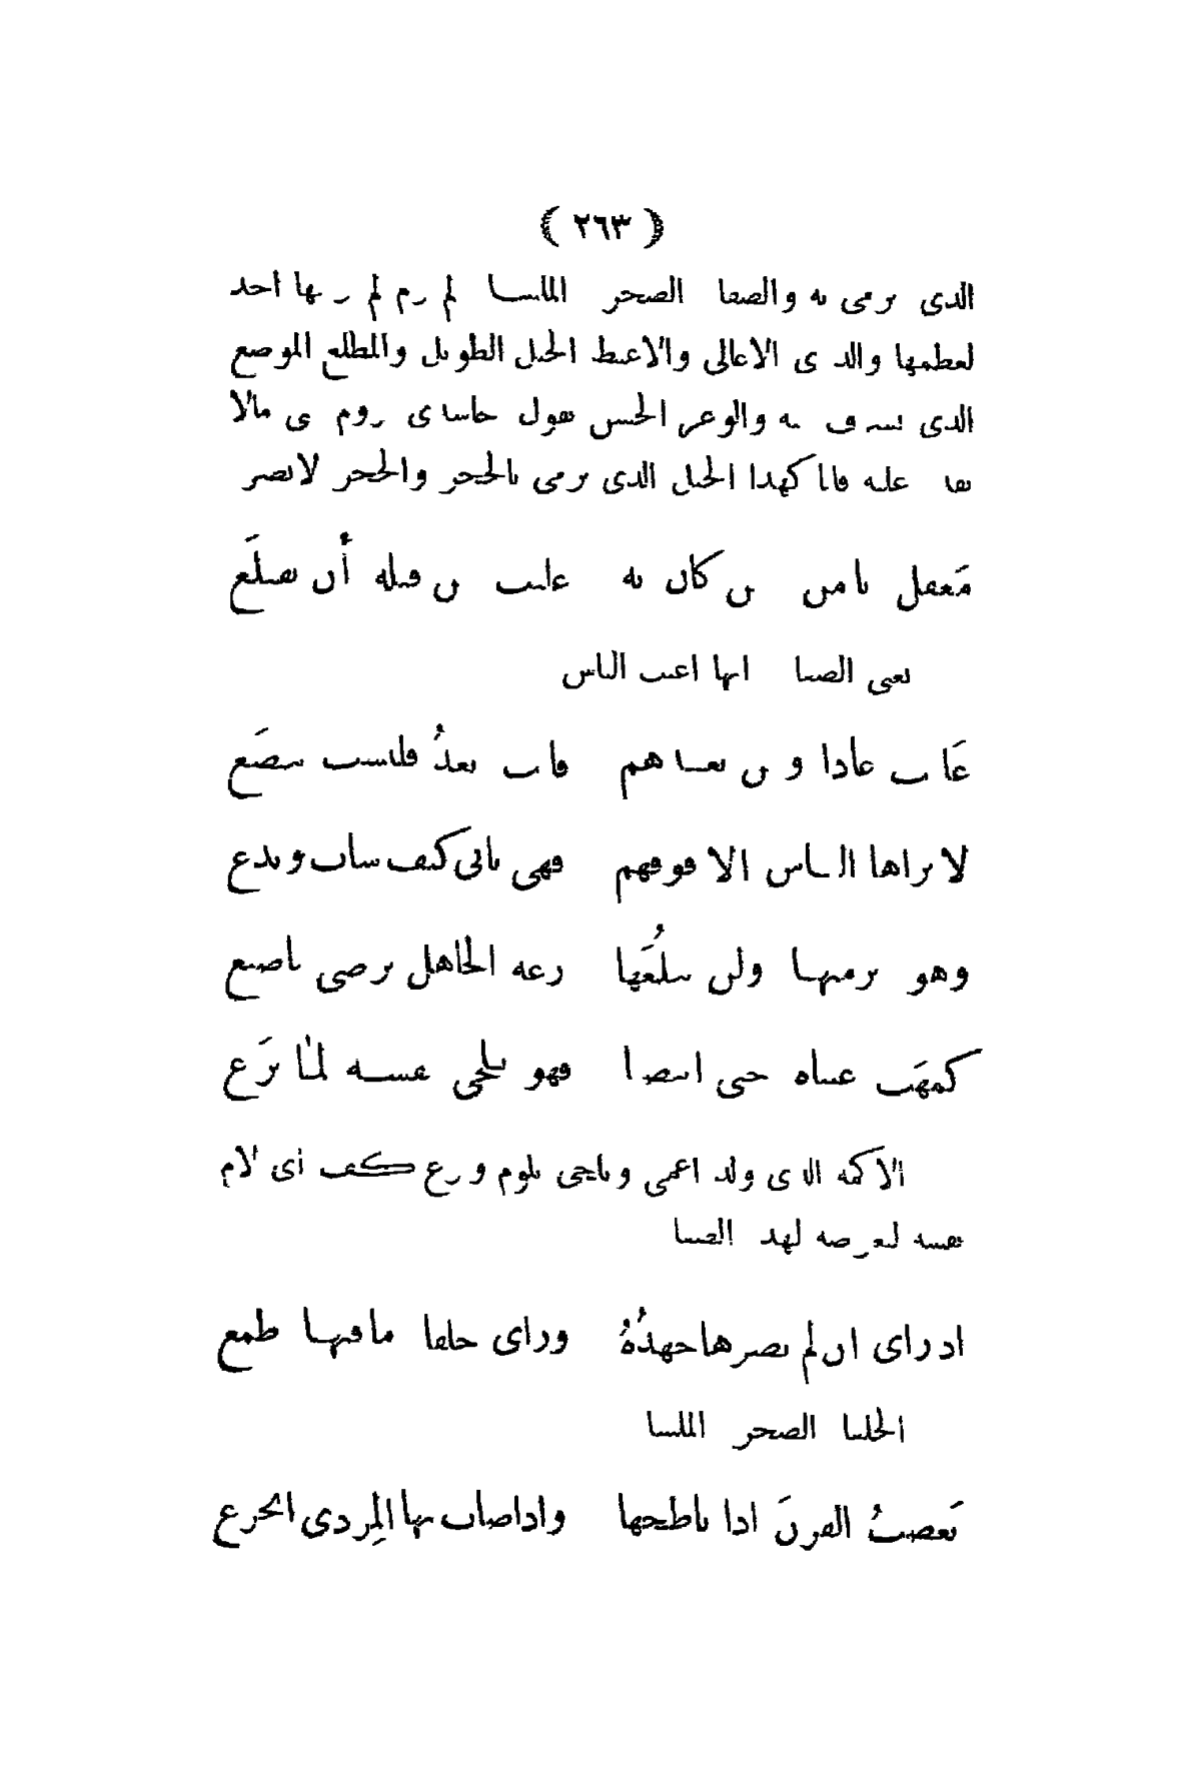 ﴿ ٢٦٣ ﴾
الذى يرمى به والصفا الصخر الملساء لم ترم لم يرمها احد
لعظمها والذرى الاعالى والاعيط الجبل الطويل والمطلع الموضع
الذى يشرف منه والوعر الخشن يقول حاسدى يروم منى مالا
يقدر عليه فانا كهذا الجبل الذى يرمى بالحجر والحجر لايضره
مَعقل يأمن من كان به غلبت من قبله أن تقتلَع
يعنى الصفاة انها اعيت الناس
غَلبت عادا ومن بعدهم فابت بعدُ فليست تتضَع
لا يراها الناس الا فوقهم فهى تاتى كيف شاءت وتدع
وهو يرميها ولن يبلُغَها رعة الجاهل يرضى ماصنع
كمهَت عيناه حتى ابيضتا فهو يلحى نفسه لمّا نزَع
الاكمه الذى ولد اعمى ويلحى يلوم ونزع كف اى لام
نفسه لتعرضه لهذه الصفاة
اذ راى ان لم يضرها جهدُهُ وراى خلقاء مافيها طمع
الخلقاء الصخرة الملساء
تَعضبُ القرنَ اذا ناطحها واذا صاب بها المِردى انجزع